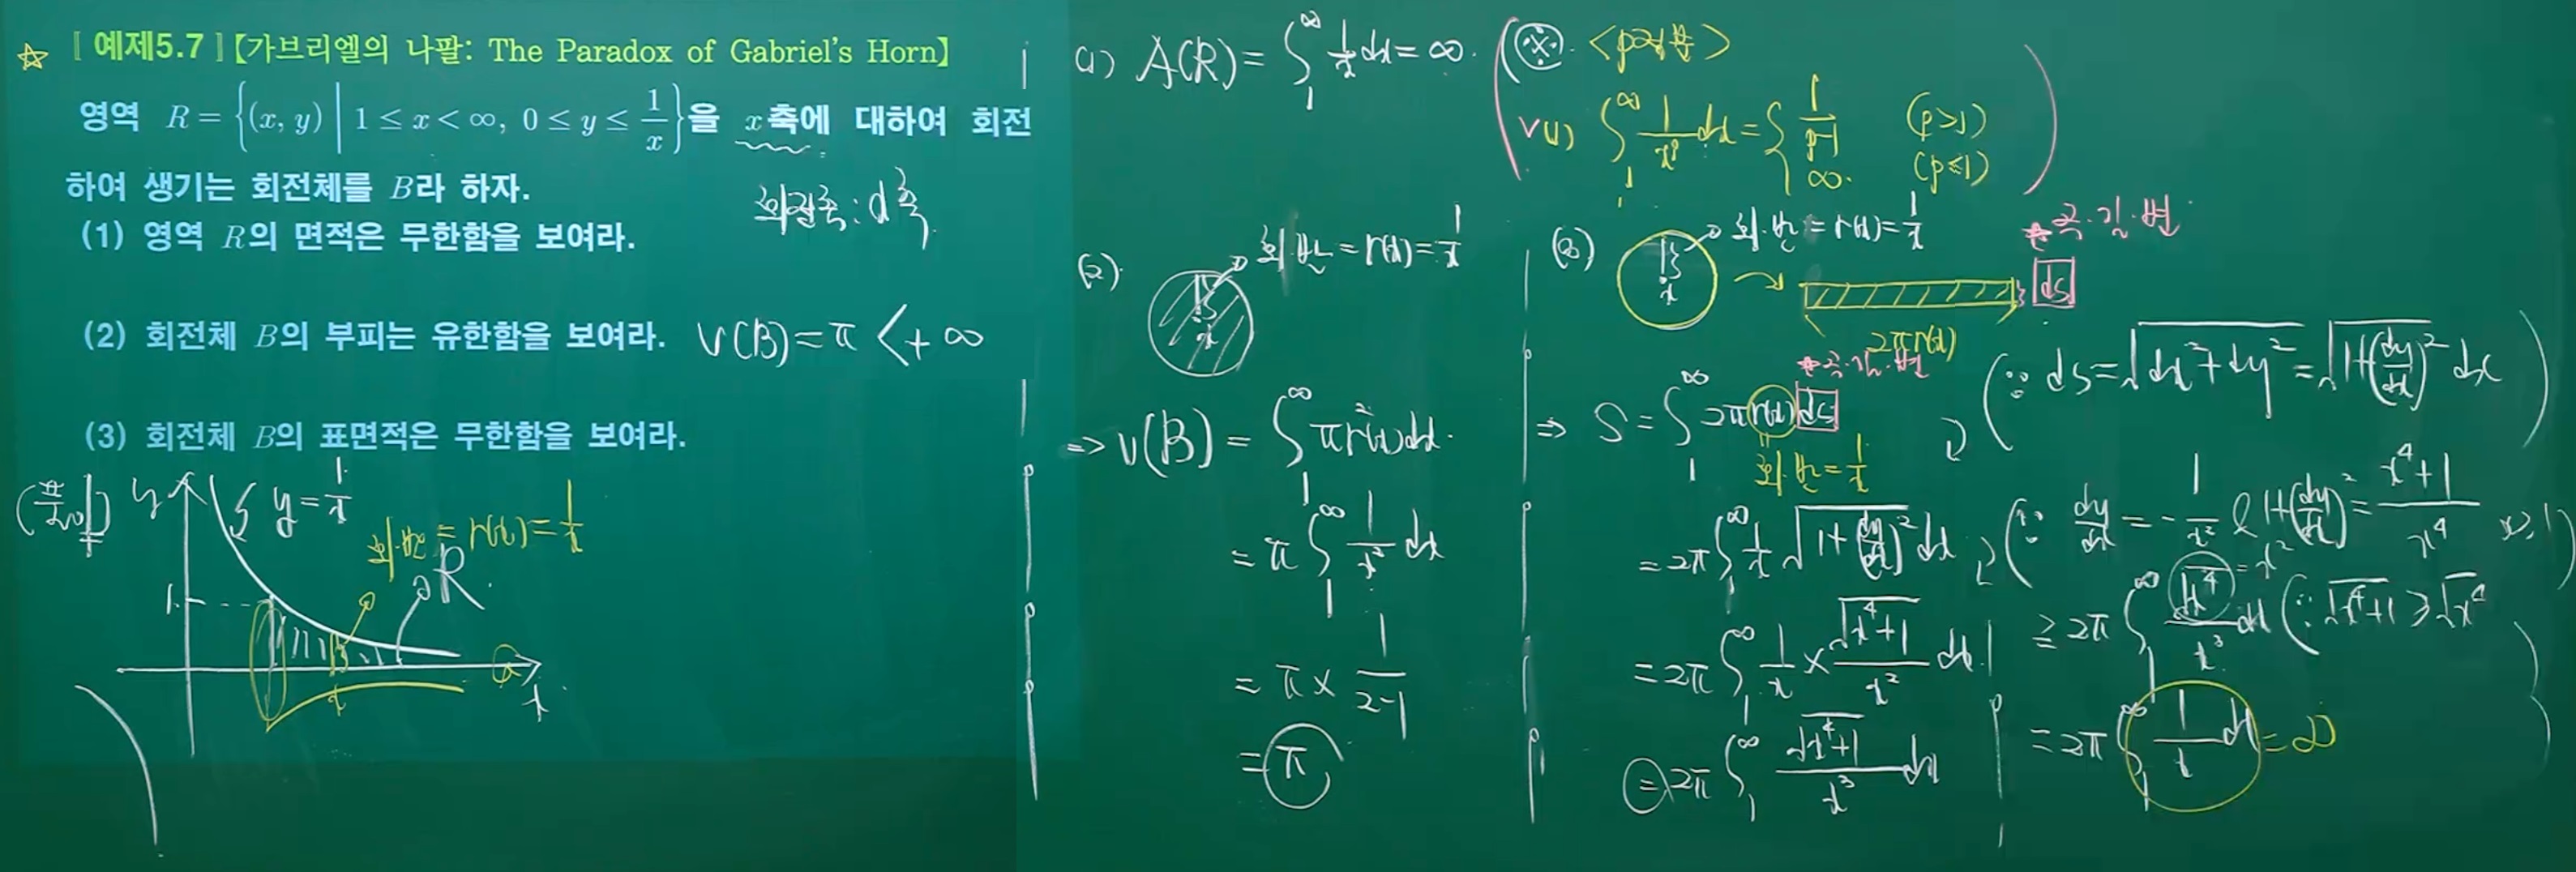 ☆ [예제5.7]【가브리엘의 나팔: The Paradox of Gabriel's Horn】
영역 R = {(x, y) | 1 ≤ x < ∞, 0 ≤ y ≤ 1/x}을 x축에 대하여 회전
하여 생기는 회전체를 B라 하자.
회전축: x축
(1) 영역 R의 면적은 무한함을 보여라.
(2) 회전체 B의 부피는 유한함을 보여라. V(B) = π < +∞
(3) 회전체 B의 표면적은 무한함을 보여라.
(풀이)
y
y = 1/x
회·반 = r(x) = 1/x
R
1
x
x
(1) A(R) = ∫₁^∞ 1/x dx = ∞.
(※. <p적분>
(1) ∫₁^∞ 1/x^p dx = { 1/(p-1) (p>1)
∞. (p≤1) )
(2).
회·반 = r(x) = 1/x
x
⇒ V(B) = ∫₁^∞ πr²(x)dx.
= π ∫₁^∞ 1/x² dx
= π × 1/(2-1)
= π
(3)
회·반 = r(x) = 1/x
x
곡·길·변
ds
2πr(x)
곡·길·변
⇒ S = ∫₁^∞ 2πr(x) ds
회·반 = 1/x
(∵ ds = √(dx²+dy²) = √(1+(dy/dx)²) dx)
= 2π ∫₁^∞ 1/x √(1+(dy/dx)²) dx
(∵ dy/dx = -1/x² & 1+(dy/dx)² = (x⁴+1)/x⁴
= 2π ∫₁^∞ 1/x × √(x⁴+1)/x² dx
= 2π ∫₁^∞ √(x⁴+1)/x³ dx
= x²
≥ 2π ∫₁^∞ √x⁴/x³ dx (∵ √(x⁴+1) ≥ √x⁴)
= 2π ∫₁^∞ 1/x dx = ∞